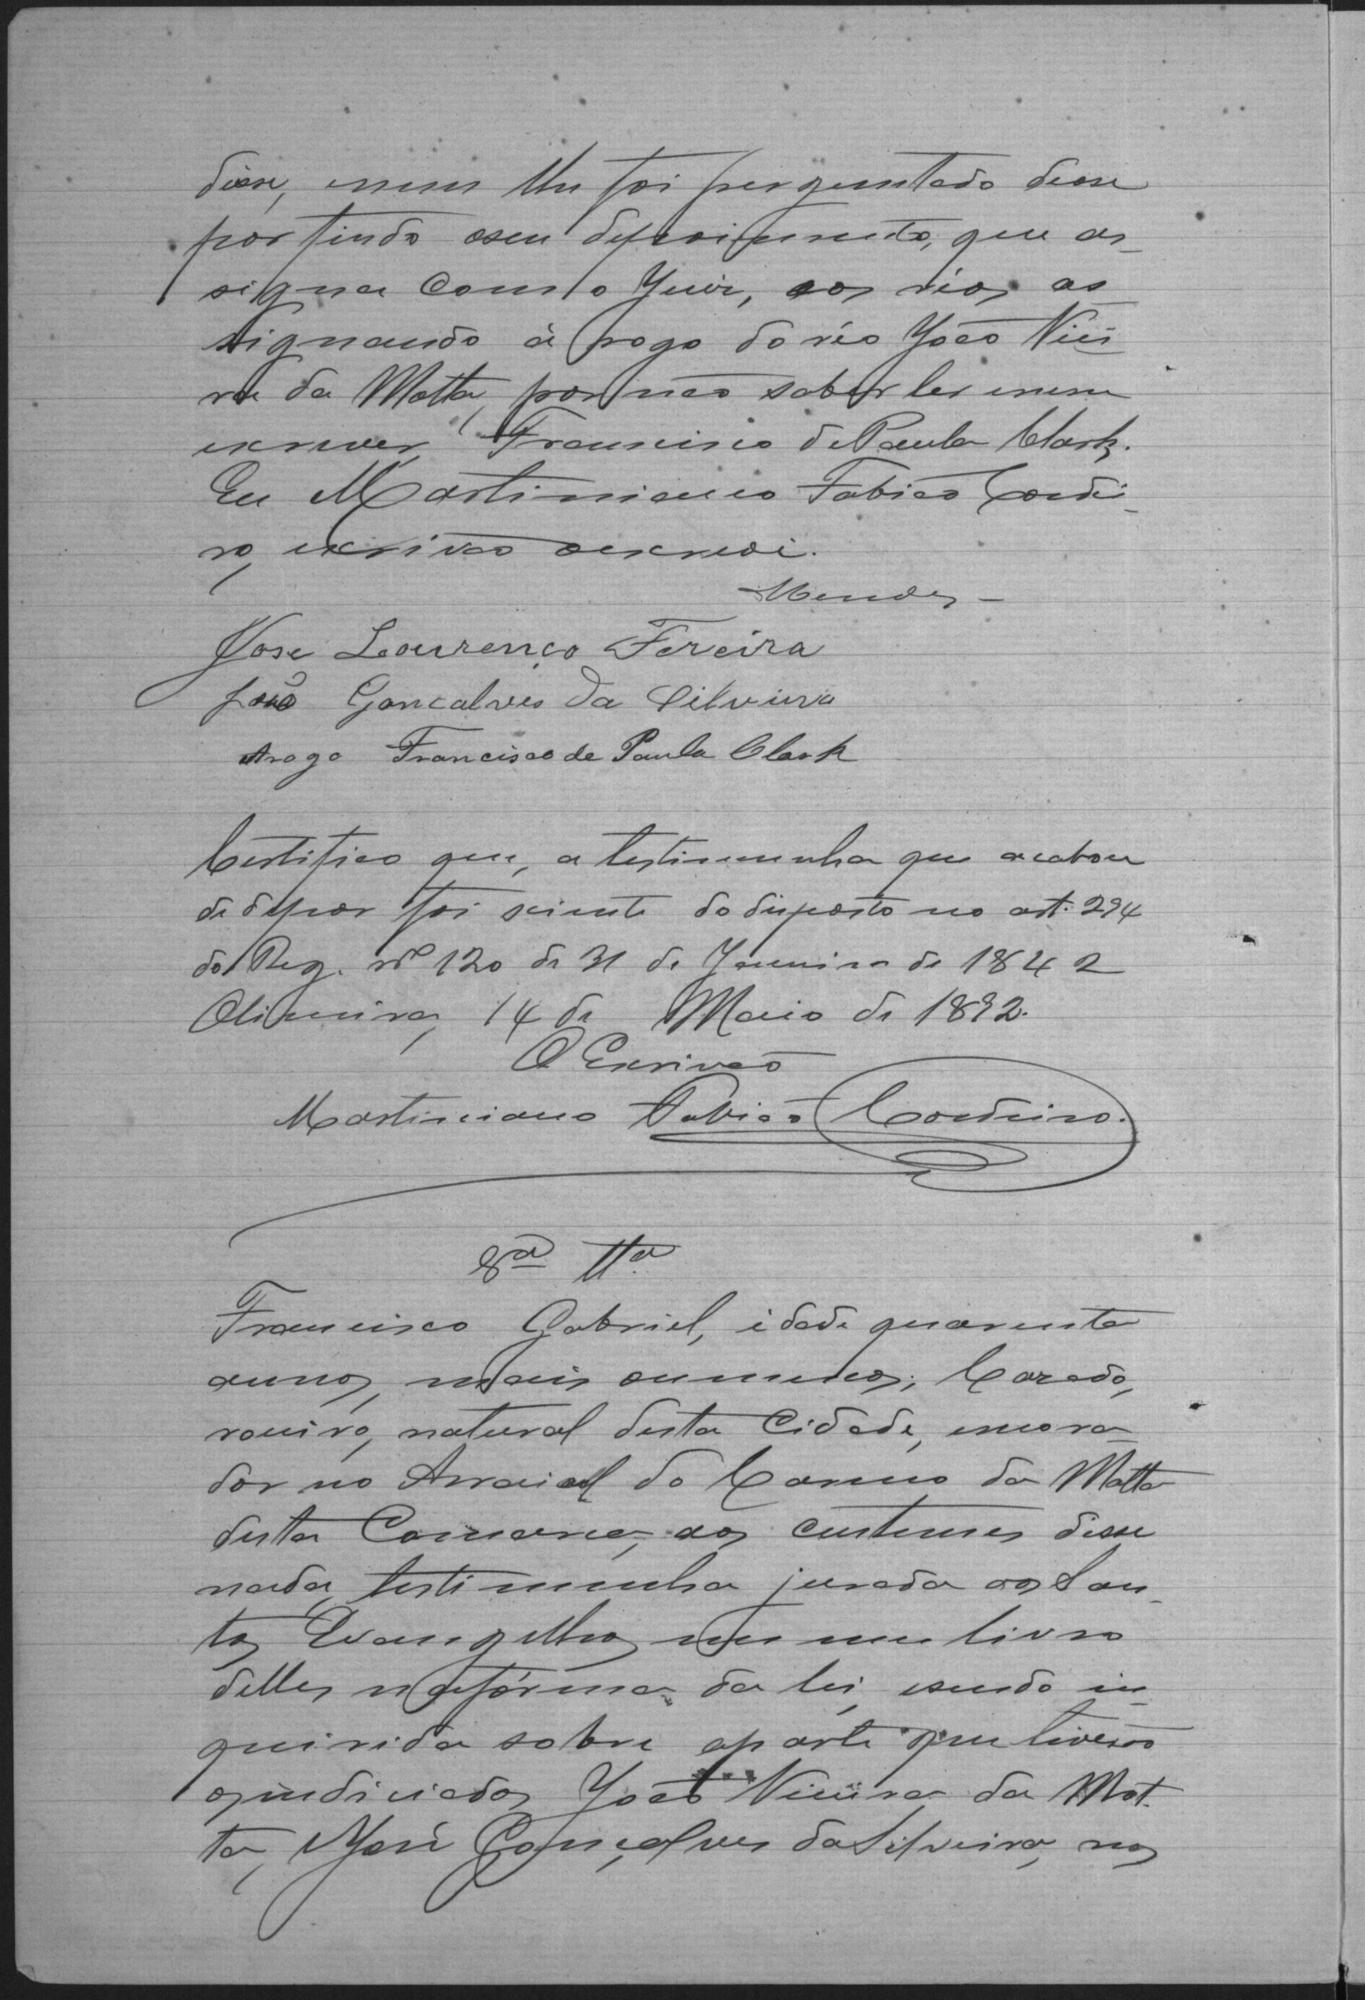 disse, e nem lhe foi perguntado deose
por findo o seu depoimento, que as-
signa com o Juiz, e os réos, as
signando á rogo do réo João Viei
ra da Motta, por não saber ler e nem
escrever, Francisco de Paula Clark.
Eu Martiniano Fabião Cordei-
ro, escrivão o escrevi.
Mendes
Jose Lourenço Fereira
José Goncalves da Silveira
Arogo Francisco de Paula Clark
Certifico que, a testimunha que acabou
de depor foi sciente do disposto no art. 294
do Reg. nº 120 de 31 de Janeiro de 1842
Oliveira, 14 de Maio de 1892.
O Escrivão
Martiniano Fabião Cordeiro.
8ª ttª
Francisco Gabriel, idade quarenta
annos, mais ou menos, Cazado,
roceiro, natural desta Cidade, e mora
dor no Arraial do Carmo da Matta
desta Comarca, aos custumes disse
nada, testimunha jurada aos San-
tos Evangelhos em um livro
delles na fórma da lei, e sendo in-
quirida sobre a parte que tiverão
os indiciados João Vieira da Mot-
ta, José Gonçalves da Silveira, nos